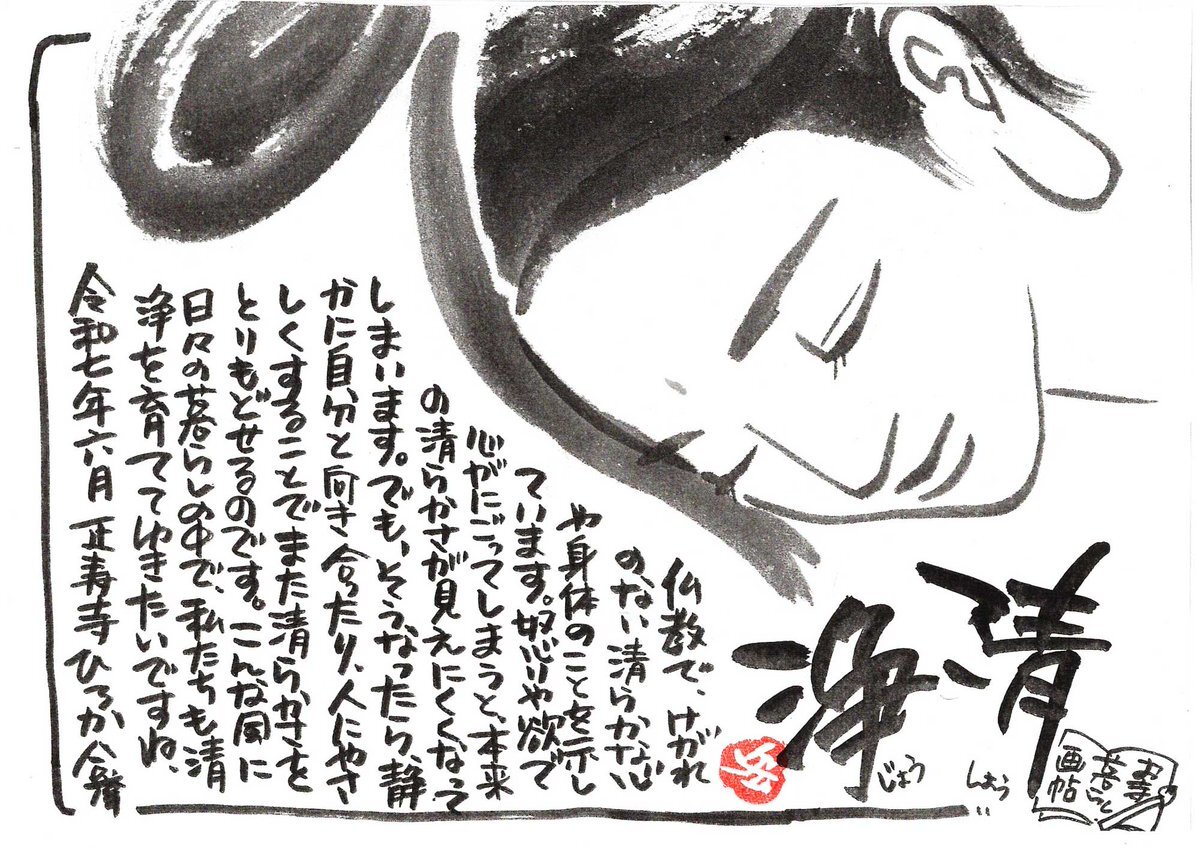 清浄
しょう
じょう
お寺
暮らし
画帖
仏教で、けがれ
のない清らかな心
や身体のことを示し
ています。怒りや欲で
心がにごってしまうと、本来
の清らかさが見えにくくなって
しまいます。でも、そうなったら、静
かに自分と向き合ったり、人にやさ
しくすることでまた清らかさを
とりもどせるのです。こんな風に
日々の暮らしの中で、私たちも清
浄を育ててゆきたいですね。
令和七年六月 正寿寺ひろか 合掌